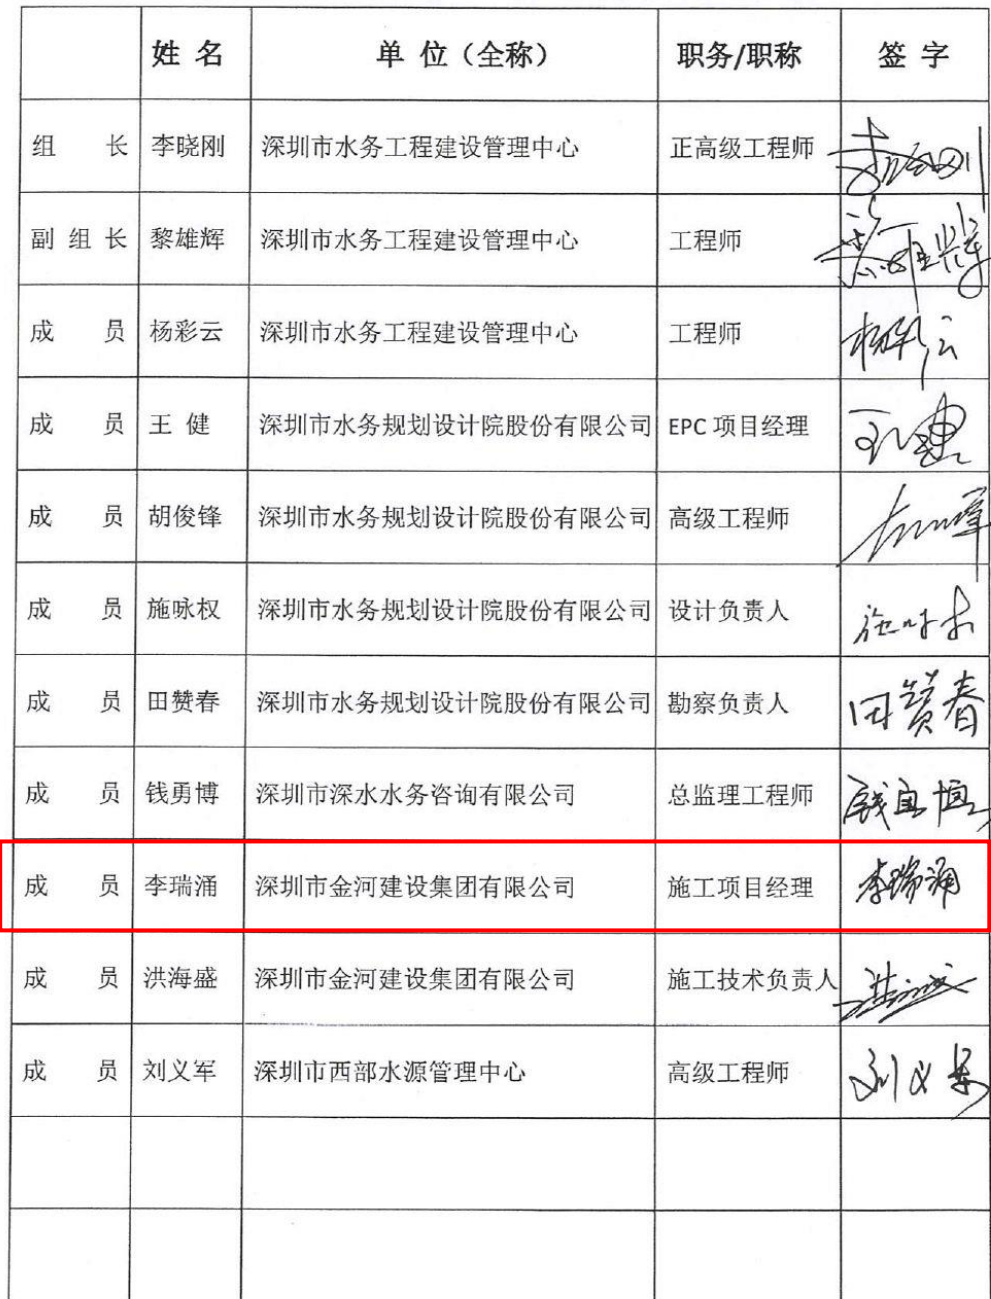 姓 名 单 位（全称） 职务/职称 签 字
组 长 李晓刚 深圳市水务工程建设管理中心 正高级工程师 李晓刚
副 组 长 黎雄辉 深圳市水务工程建设管理中心 工程师 黎雄辉
成 员 杨彩云 深圳市水务工程建设管理中心 工程师 杨彩云
成 员 王 健 深圳市水务规划设计院股份有限公司 EPC 项目经理 王健
成 员 胡俊锋 深圳市水务规划设计院股份有限公司 高级工程师
成 员 施咏权 深圳市水务规划设计院股份有限公司 设计负责人
成 员 田赞春 深圳市水务规划设计院股份有限公司 勘察负责人 田赞春
成 员 钱勇博 深圳市深水水务咨询有限公司 总监理工程师
成 员 李瑞涌 深圳市金河建设集团有限公司 施工项目经理 李瑞涌
成 员 洪海盛 深圳市金河建设集团有限公司 施工技术负责人
成 员 刘义军 深圳市西部水源管理中心 高级工程师 刘义军